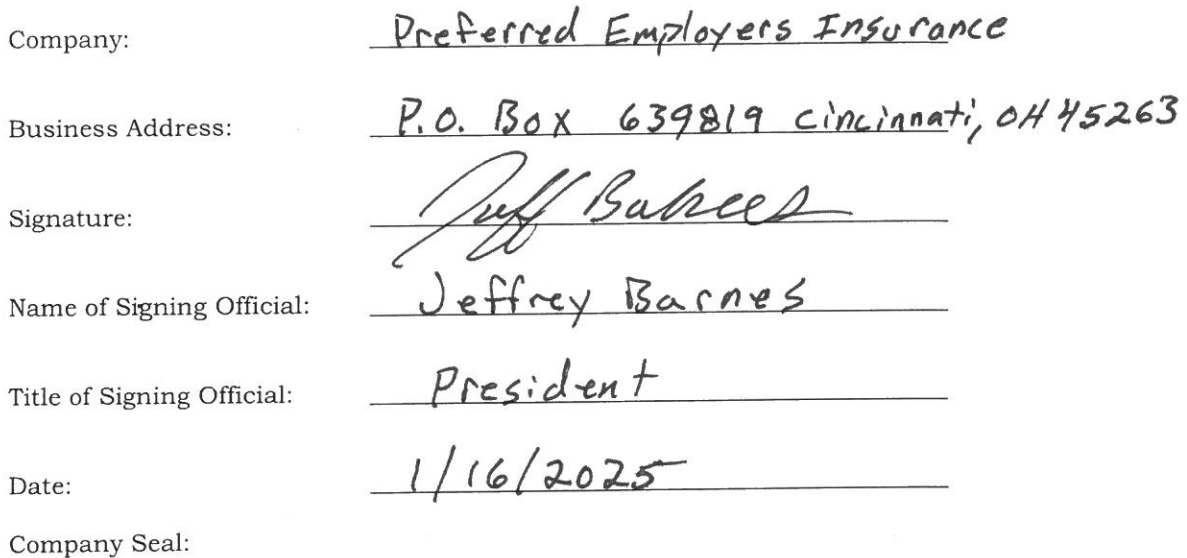 Company: Preferred Employers Insurance
Business Address: P.O. Box 639819 Cincinnati, OH 45263
Signature: Jeff
Name of Signing Official: Jeffrey Barnes
Title of Signing Official: President
Date: 1/16/2025
Company Seal: